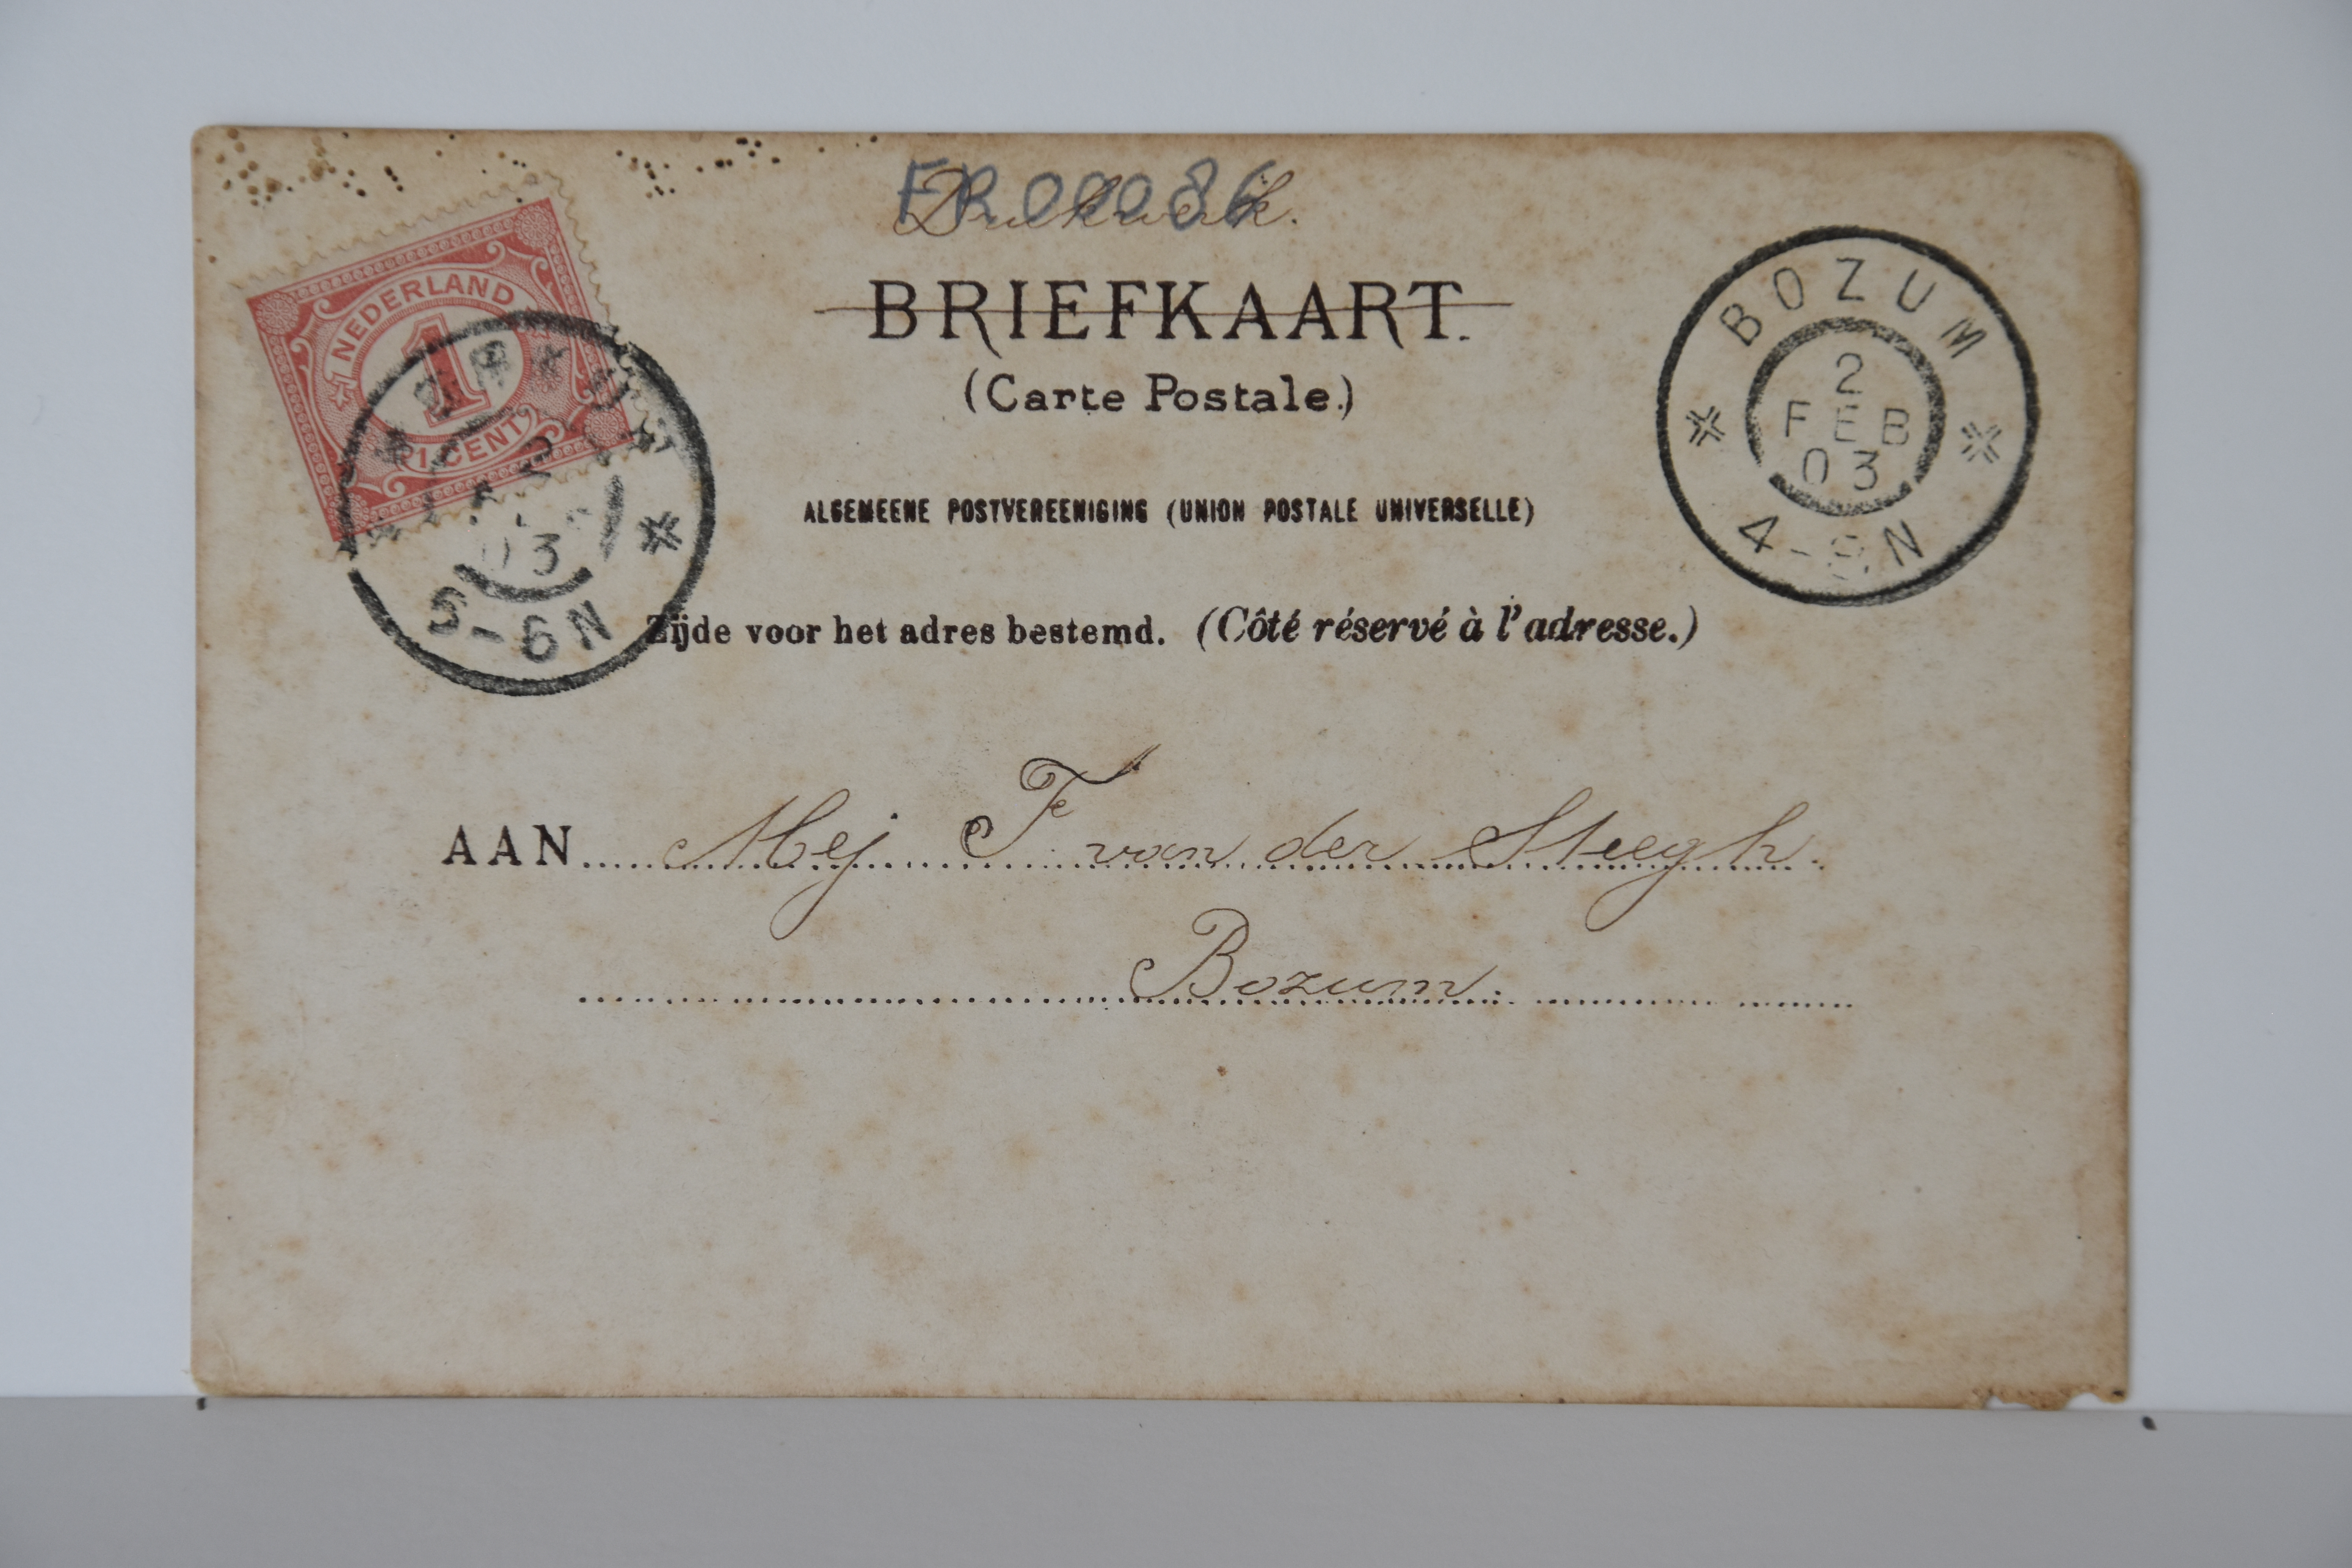 FR 00086
Drukwerk.
BRIEFKAART.
(Carte Postale.)
ALGEMEENE POSTVEREENIGING (UNION POSTALE UNIVERSELLE)
Zijde voor het adres bestemd. (Côté réservé à l'adresse.)
NEDERLAND
1
1 CENT
2
03
5-6N
BOZUM
2
FEB
03
4-8N
AAN Mej F van der Steegh.
Bozum.